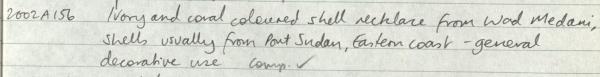 2002A156 Ivory and coral coloured shell necklace from Wad Medani,
shells usually from Port Sudan, Eastern coast - general
decorative use comp. ✓